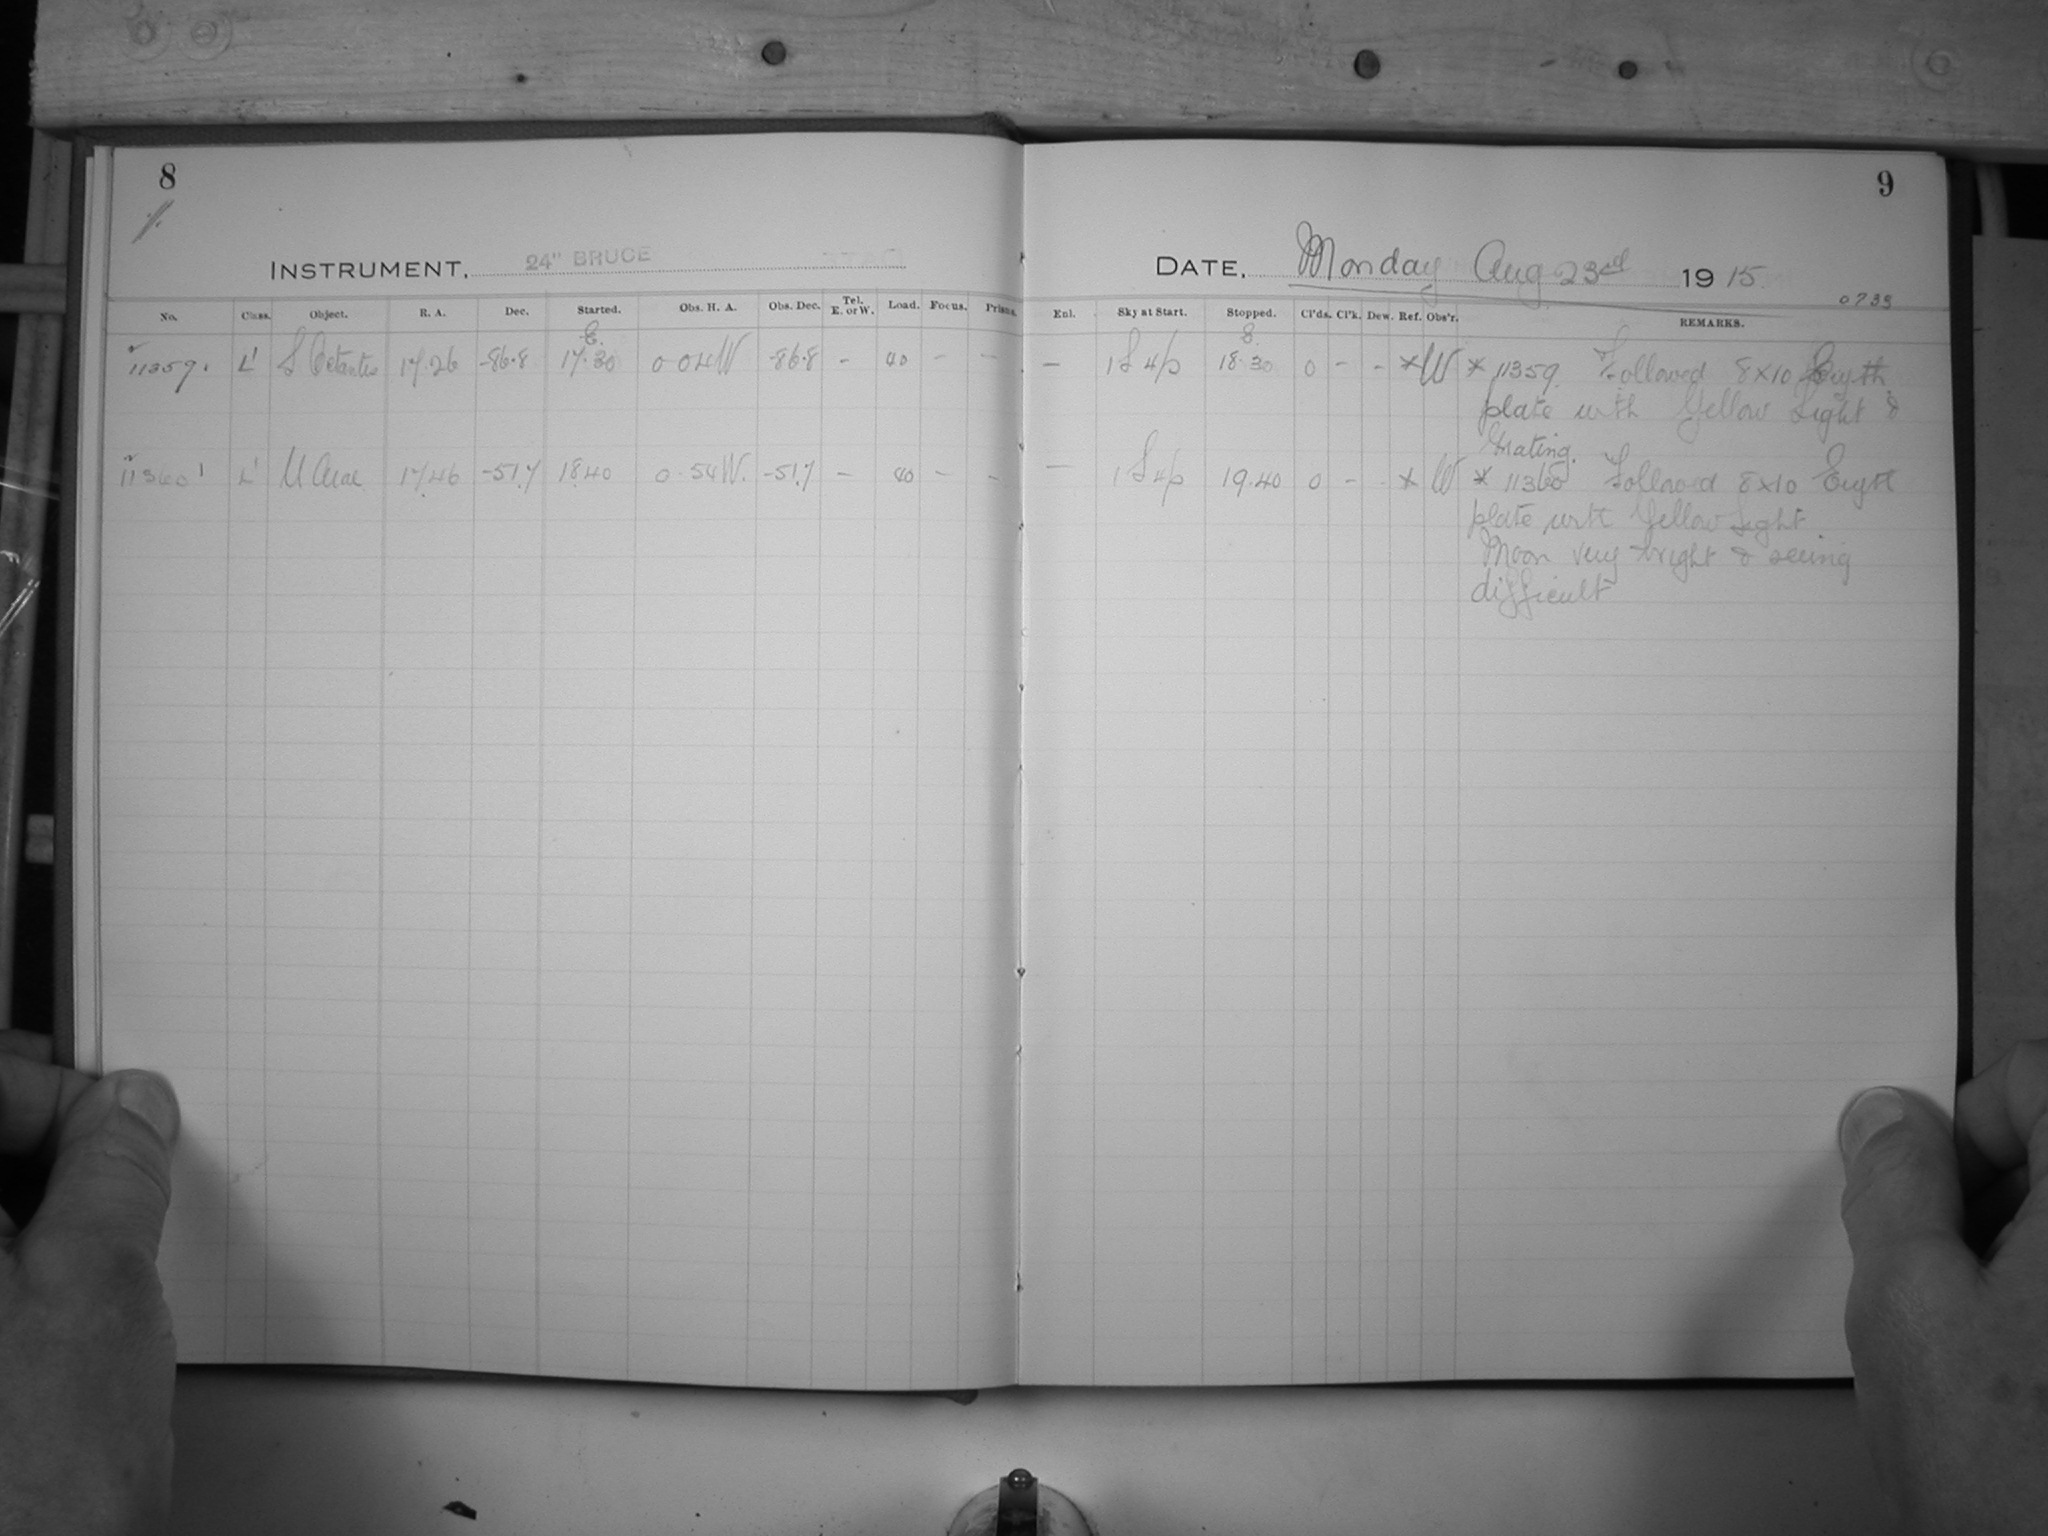 8
9
INSTRUMENT, 24" BRUCE
DATE, Monday Aug 23rd 1915
0733
No. Class. Object. R. A. Dec. Started. Obs. H. A. Obs. Dec. Tel. E. or W. Load. Focus. Prisms.
Enl. Sky at Start. Stopped. Cl'ds. Cl'k. Dew. Ref. Obs'r. REMARKS.
11359 L' S Octantis 17.26 -86.8 17.30 0 04W -86.8 - 40 - -
- 1S 4p 18.30 0 - - * W * 11359 Followed 8x10 Eryth
plate with Yellow Light &
Grating.
11360 L' U Arae 17.46 -51.7 18.40 0.54W. -51.7 - 40 - -
- 1S 4p 19.40 0 - - * W * 11360 Followed 8x10 Eryth
plate with Yellow Light
Moon very bright & seeing
difficult